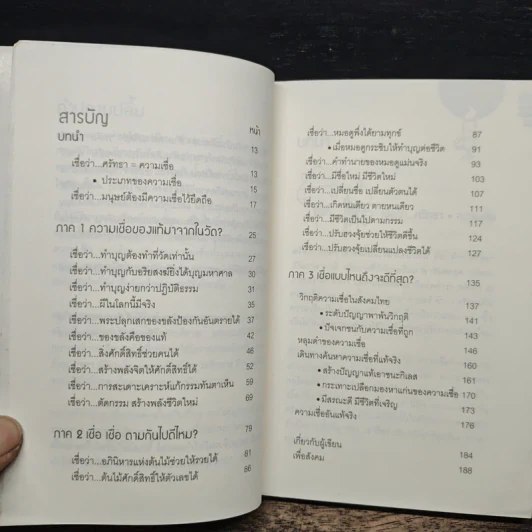 สารบัญ
หน้า
บทนำ 13
เชื่อว่า...ศรัทธา = ความเชื่อ 13
• ประเภทของความเชื่อ 15
เชื่อว่า...มนุษย์ต้องมีความเชื่อไว้ยึดถือ 17
ภาค 1 ความเชื่อของแท้มาจากในวัด? 25
เชื่อว่า...ทำบุญต้องทำที่วัดเท่านั้น 27
เชื่อว่า...ทำบุญกับอริยสงฆ์ยิ่งได้บุญมหาศาล 30
เชื่อว่า...ทำบุญง่ายกว่าปฏิบัติธรรม 31
เชื่อว่า...ผีในโลกนี้มีจริง 35
เชื่อว่า...พระปลุกเสกของขลังป้องกันอันตรายได้ 37
เชื่อว่า...ของขลังคือของแท้ 42
เชื่อว่า...สิ่งศักดิ์สิทธิ์ช่วยคนได้ 46
เชื่อว่า...สร้างพลังจิตให้ศักดิ์สิทธิ์ได้ 52
เชื่อว่า...การสะเดาะเคราะห์แก้กรรมทันตาเห็น 59
เชื่อว่า...ตัดกรรม สร้างพลังชีวิตใหม่ 69
ภาค 2 เชื่อ เชื่อ ตามกันไปดีไหม? 79
เชื่อว่า...อภินิหารแห่งต้นไม้ช่วยให้รวยได้ 81
เชื่อว่า...ต้นไม้ศักดิ์สิทธิ์ให้ตัวเลขได้ 86
เชื่อว่า...หมอดูพึ่งได้ยามทุกข์ 87
• เมื่อหมอดูกระซิบให้ทำบุญต่อชีวิต 91
เชื่อว่า...คำทำนายของหมอดูแม่นจริง 93
เชื่อว่า...มีชื่อใหม่ มีชีวิตใหม่ 103
เชื่อว่า...เปลี่ยนชื่อ เปลี่ยนตัวตนได้ 107
เชื่อว่า...เกิดหนเดียว ตายหนเดียว 111
เชื่อว่า...มีชีวิตเป็นไปตามกรรม 117
เชื่อว่า...ปรับฮวงจุ้ยช่วยให้ชีวิตดีขึ้น 124
เชื่อว่า...ปรับฮวงจุ้ยเปลี่ยนแปลงชีวิตได้ 127
ภาค 3 เชื่อแบบไหนถึงจะดีที่สุด? 135
วิกฤติความเชื่อในสังคมไทย 137
• ระดับปัญญาพาพ้นวิกฤติ 141
• ปัจเจกชนกับความเชื่อที่ถูก 143
หลุมดำของความเชื่อ 146
เดินทางค้นหาความเชื่อที่แท้จริง 160
• สร้างปัญญาแท้เอาชนะกิเลส 161
• กระเทาะเปลือกมองหาแก่นของความเชื่อ 170
• มีสรณะดี มีชีวิตที่เจริญ 173
ความเชื่ออันแท้จริง 176
เกี่ยวกับผู้เขียน 184
เพื่อสังคม 188